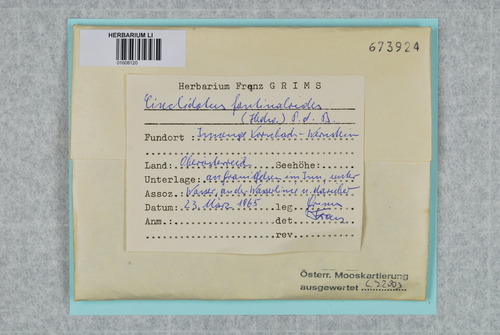 HERBARIUM LI
01608120
673924
Herbarium Franz GRIMS
Cinclidotus fontinaloides
(Hedw.) P. d. B.
Fundort : Innenge Vornbach - Wernstein
Land: Oberösterreich Seehöhe:
Unterlage: an Felsen im Inn, unter
Assoz.: Wasser, an der Wasserlinie u.
Datum: 23. März 1965 leg. Grims
Anm.: det. Franz
rev.
Österr. Mooskartierung
ausgewertet